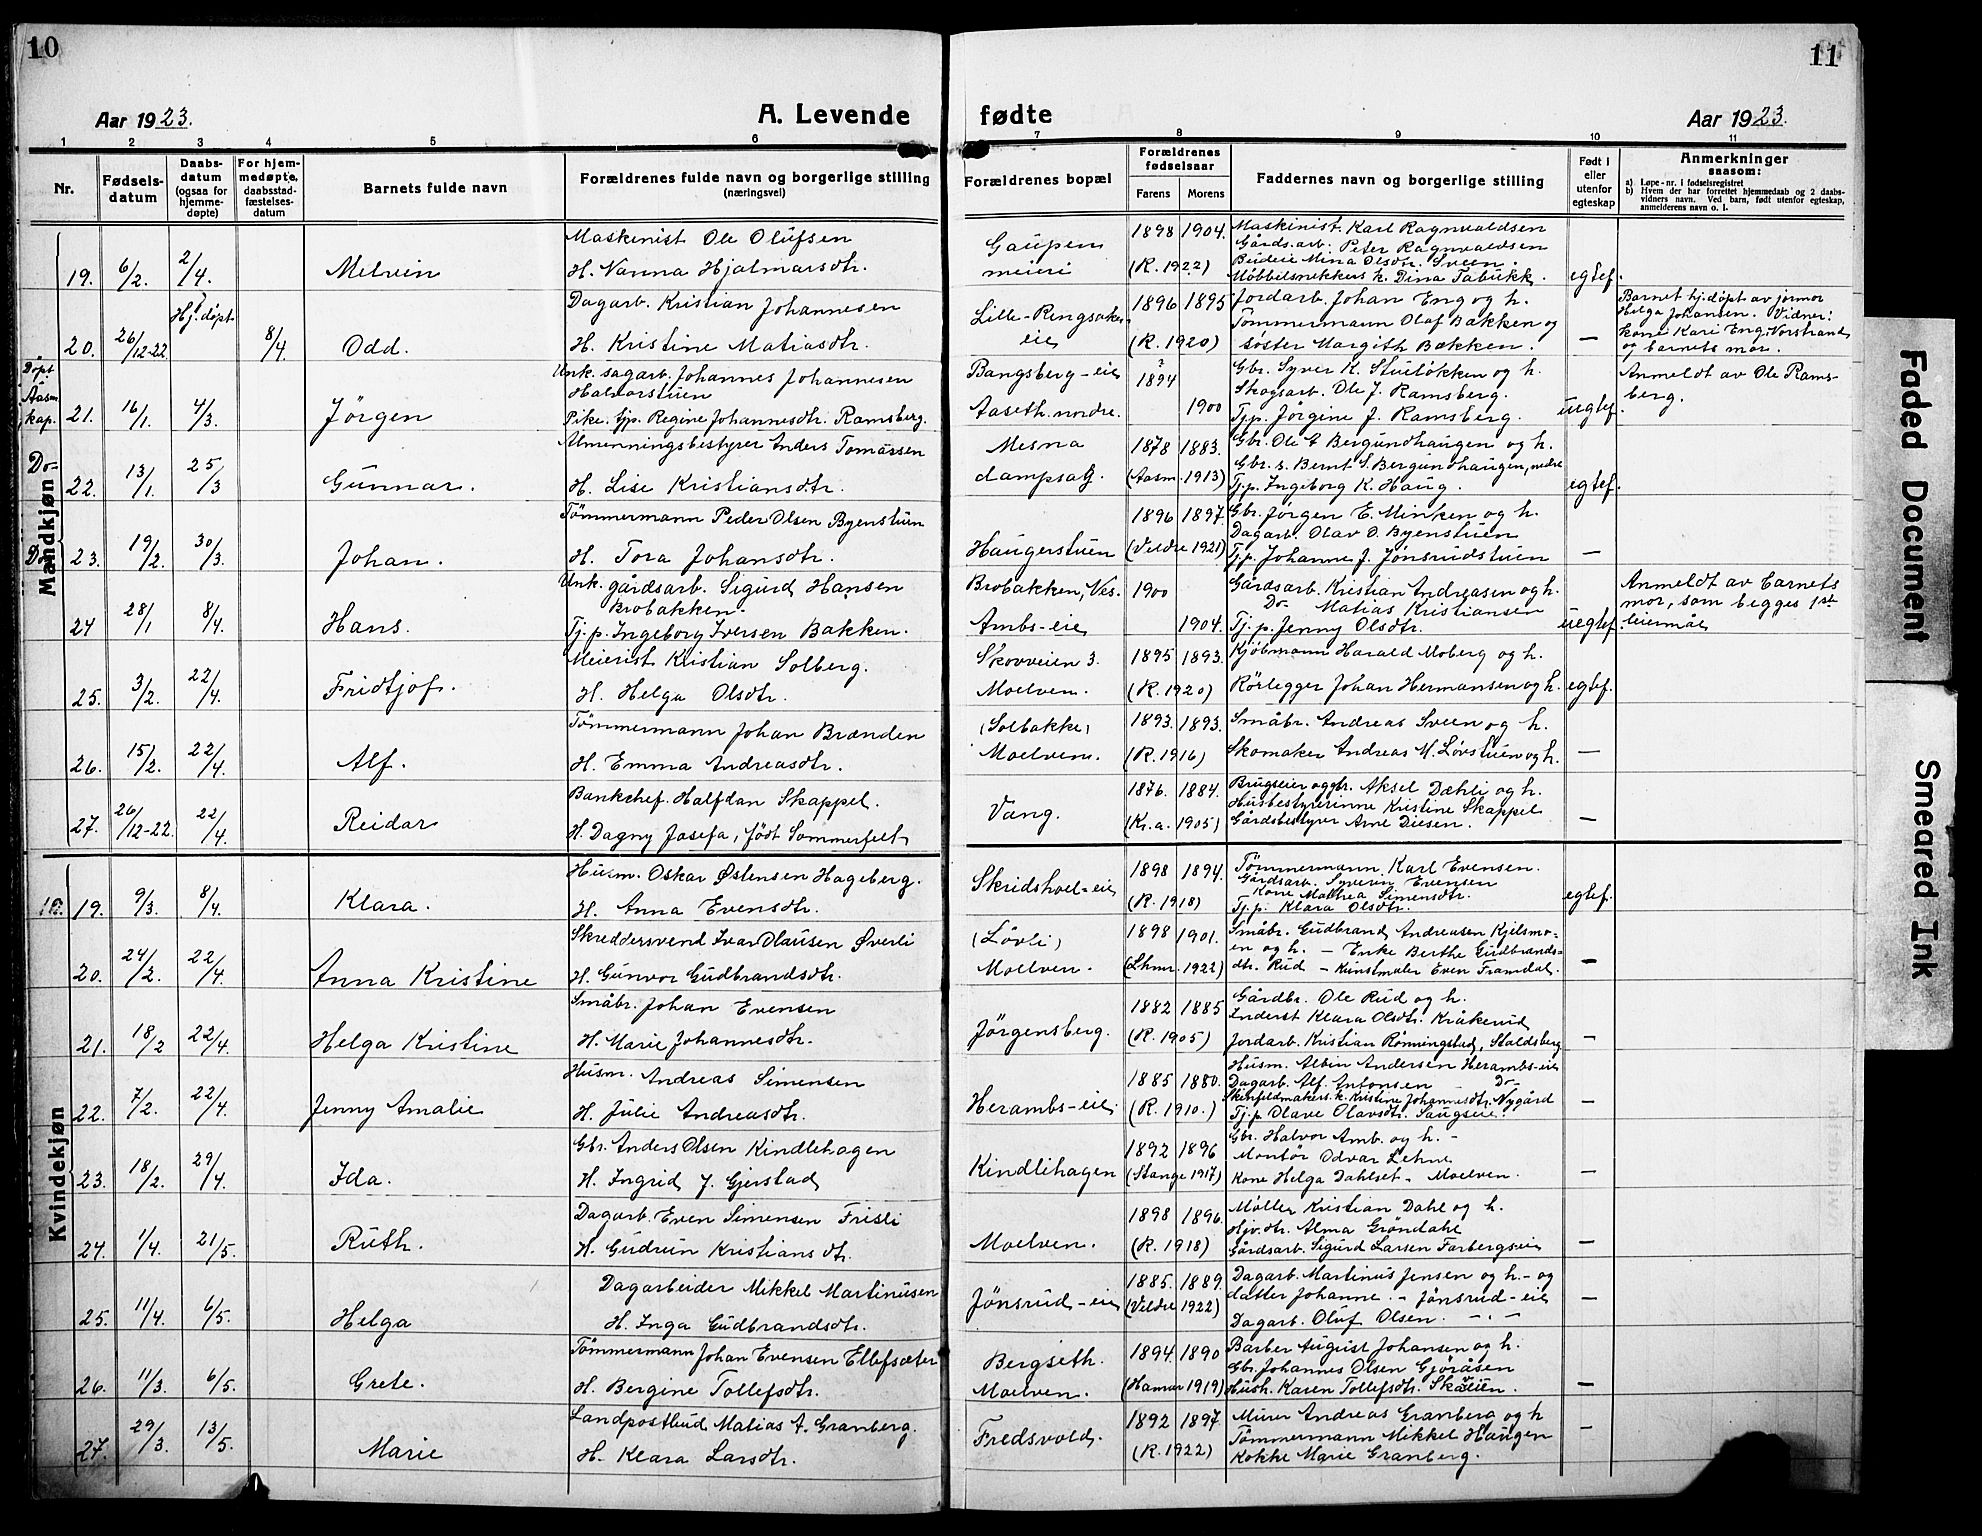 10
Aar 1923.
A. Levende
1 2 3 4 5 6
Nr.
Fødsels-
datum
Daabs-
datum
(ogsaa for
hjemme-
døpte)
For hjem-
medøpte,
daabsstad-
fæstelses-
datum
Barnets fulde navn
Forældrenes fulde navn og borgerlige stilling
(næringsvei)
Mandkjøn
Maskinist Ole Olufsen
19. 6/2. 2/4. Melvin H. Nanna Hjalmarsdtr.
Dagarb. Kristian Johannesen
Hj. døpt
20. 26/12-22. 8/4. Odd. H. Kristine Matiasdtr.
Døpt i
Aasm.
kap.
Unk. sagarb. Johannes Johannesen
Halvorstuen
21. 16/1. 4/3. Jörgen Pike. Tjp. Regine Johannesdtr. Ramsberg.
Almenningsbestyrer Anders Tomassen
Do-
22. 13/1. 25/3 Gunnar. H. Lise Kristiansdtr.
Tömmermann Peder Olsen Byenstuen
Do-
23. 19/2. 30/3. Johan. H. Tora Johansdtr.
Unk. gårdsarb. Sigurd Hansen
Brobakken.
24 28/1 8/4. Hans. Tj. p. Ingeborg Iversen Bakken.
Meierist Kristian Solberg.
25. 3/2. 22/4. Fridtjof. H. Helga Olsdtr.
Tömmermann Johan Brænden
26. 15/2. 22/4. Alf. H. Emma Andreasdtr.
Bankchef. Halfdan Skappel.
27. 26/12-22. 22/4 Reidar H. Dagny Josefa, født Sommerfelt
Kvindekjøn
Husm. Oskar Østensen Hageberg.
19. 9/3. 8/4. Klara. H. Anna Evensdtr.
Skreddersvend Ivar Olausen Øverli
20. 24/2. 22/4. Anna Kristine H. Gunvor Gudbrandsdtr.
Småbr. Johan Evensen
21. 18/2 22/4. Helga Kristine H. Marie Johannesdtr.
Husm. Andreas Simensen
22. 7/2. 22/4. Jenny Amalie H. Julie Andreasdtr.
Gbr. Anders Olsen Kindlehagen
23. 18/2. 29/4. Ida. H. Ingrid J. Gjerstad
Dagarb. Even Simensen Frisli
24. 1/4. 21/5. Ruth. H. Gudrun Kristiansdtr.
Dagarbeider Mikkel Martinusen
25. 11/4. 6/5. Helga H. Inga Gudbrandsdtr.
Tömmermann Johan Evensen Ellefsæter
26. 11/3. 6/5. Grete. H. Bergine Tollefsdtr.
Landpostbud Matias A. Granberg.
27. 29/3. 13/5. Marie H. Klara Larsdtr.
11
fødte
Aar 1923.
7 8 9 10 11
Forældrenes bopæl
Forældrenes
fødselsaar
Farens Morens
Faddernes navn og borgerlige stilling
Født i
eller
utenfor
egteskap
Anmerkninger
saasom:
a) Løpe-nr. i fødselsregistret
b) Hvem der har forrettet hjemmedaab og 2 daabs-
vidners navn. Ved barn, født utenfor egteskap,
anmelderens navn o. l.
Gaupen 1898 1904. Maskinist. Karl Ragnvaldsen
Gårds.arb. Peter Ragnvaldsen
meieri (R. 1922) Budeie Mina Olsdtr. Sveen.
Möbbelsnekkers k. Dina Tabukk. egtef.
Lille-Ringsaker- 1896 1895 Jordarb. Johan Eng og h.
eie Tömmermann Olaf Bakken og
(R. 1920) söster Margith Bakken. —
Barnet hj. døpt av jormor
Helga Johansen. Vidner:
kone Kari Eng, Norstrand
og barnets mor.
Bangsberg-eie 1894 Gbr. Syver K. Stuelökken og h.
Skogsarb. Ole J. Ramsberg.
Aaseth nordre. 1900 Tjp. Jörgine J. Ramsberg. uegtef.
Anmeldt av Ole Rams-
berg.
Mesna 1878 1883. Gbr. Ole E Bergundhaugen og h.
Gbr. s. Bernt S. Bergundhaugen, nedre
dampsag. (Aasm. 1913) Tj.p. Ingeborg K. Haug. egtef.
1896 1897. Gbr. Jörgen E. Minken og h.
Dagarb. Olav O. Byenstuen
Haugerstuen (Veldre 1921) Tj.p. Johanne J. Jönsrudstuen —
Brobakken, Ves. 1900 Gårdsarb. Kristian Andreasen og h.
Do- Matias Kristiansen
Ambs-eie 1904. Tj. p. Jenny Olsdtr. uegtef.
Anmeldt av barnets
mor, som begges 1ste
leiermål
Skovveien 3. 1895 1893. Kjöbmann Harald Moberg og h.
Moelven. (R. 1920) Rörlegger Johan Hermansen og h. egtef.
(Solbakke) 1893. 1893. Småbr. Andreas Sveen og h.
Moelven. (R. 1916) Skomaker Andreas M. Lövstuen og h. —
1876. 1884. Brugseier og gbr. Aksel Dæhli og h.
Husbestyrerinne Kristine Skappel
Vang. (Kr.a. 1905) Gårdsbestyrer Arne Diesen. —
1898 1894. Tömmermann Karl Evensen.
Gårdsarb. Syverin Evensen
Skridshoel-eie Kone Mathea Simensdtr.
(R. 1918) Tj.p. Klara Olsdtr. egtef.
(Lövli) 1898 1901. Småbr. Gudbrand Andreasen Kjelsmo-
en og h. — Enke Berthe Gudbrands-
Moelven. (Lhmr. 1922) dtr. Rud — Kunstmaler Even Framdal. —
1882 1885 Gårdbr. Ole Rud og h.
Inderst Klara Olsdtr. Kråkerud
Jörgensberg. (R. 1905) Jordarb. Kristian Rönningstad, Staldsberg —
Husm. Albin Andersen Herambs-eie
1885 1880. Dagarb. Alf. Antonsen Do-
Skinfeldmakers k. Kristine Johannesdtr. Nygård
Herambs-eie (R. 1910.) Tj. p. Olave Olavsdtr. Saugseie. —
1892 1896 Gbr. Halvor Amb. og h. -
Montör Odvar Lehne
Kindlihagen (Stange 1917) Kone Helga Dahlset - Moelven. —
1898 1896. Møller Kristian Dahl og h.
Hjv.dtr. Alma Gröndahl
Moelven. (R. 1918) Gårdsarb. Sigurd Larsen Farbergseie —
1885. 1889. Dagarb. Martinus Jensen og h. - og
datter Johanne. - Jönsrud-eie
Jönsrud-eie (Veldre 1922) Dagarb. Oluf Olsen. - . - —
Bergseth. 1894. 1890 Barber August Johansen og h.
Gbr. Johannes Olsen Gjöråsen
Moelven. (Hamar 1919) Hush. Karen Tollefsdtr. Skarlien. —
1892 1897. Murer Andreas Granberg og h
Fredsvold. Tömmermann Mikkel Haugen
(R. 1922) Kokke Marie Granberg. —
Faded Document
Smeared Ink